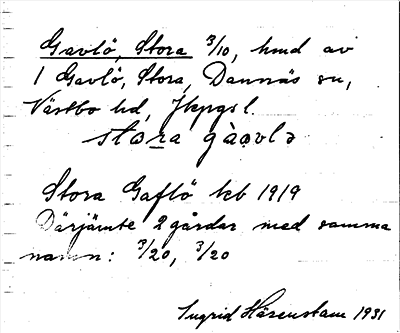 Gavlö, Stora 3/10, hmd av
1 Gavlö, Stora, Dannäs sn,
Västbo hd, Jkpgs l.
stora gàavlə
Stora Gaflö kb 1919
Därjämte 2 gårdar med samma
namn: 3/20, 3/20
Ingrid Hasenstam 1931